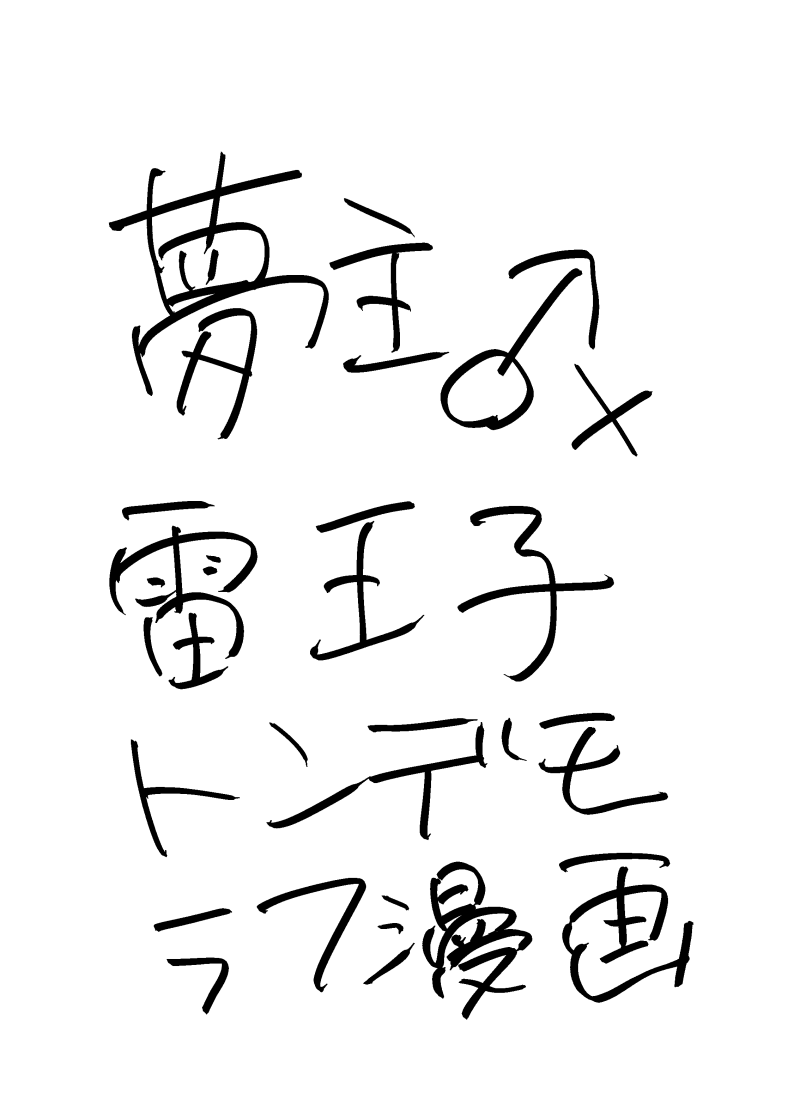 夢主♂×
雷王子
トンデモ
ラフ漫画